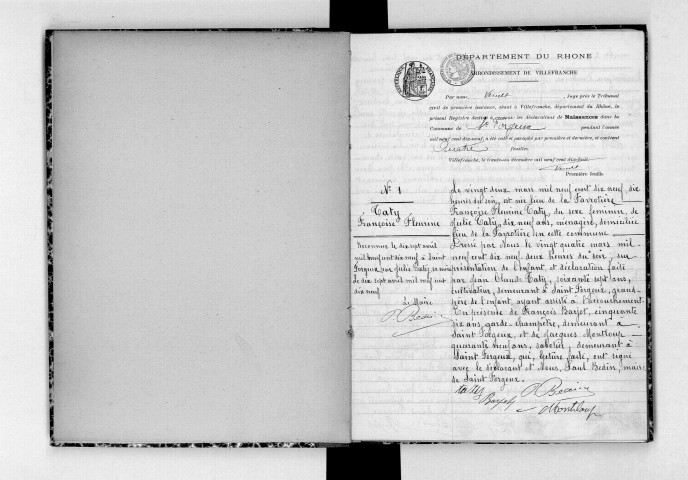 DÉPARTEMENT DU RHÔNE
ARRONDISSEMENT DE VILLEFRANCHE
Par nous, Juge près le Tribunal
civil de première instance, séant à Villefranche, département du Rhône, le
présent Registre destiné à recevoir les déclarations de Naissances dans la
Commune de St Forgeux pendant l'année
mil neuf cent dix-neuf, a été coté et paraphé par première et dernière, et contient
Quatre feuilles.
Villefranche, le trente-un décembre mil neuf cent dix-huit.
Première feuille
N° 1
Caty
Françoise Fleurine
Reconnue le dix sept avril
mil neuf cent dix neuf à Saint
Forgeux par Julie Caty, sa mère
Le dix sept avril mil neuf cent
dix neuf
Le Maire
P Bedin
Le vingt deux mars mil neuf cent dix neuf, dix
heures du soir, est née lieu de la Favrotière
Françoise Fleurine Caty, du sexe féminin, de
Julie Caty, dix neuf ans, ménagère, domiciliée
lieu de la Favrotière en cette commune
Dressé par Nous le vingt quatre mars mil
neuf cent dix neuf, deux heures du soir, sur
présentation de l'enfant et déclaration faite
par Jean Claude Caty, soixante sept ans,
cultivateur, demeurant à Saint Forgeux, grand-
père de l'enfant, ayant assisté à l'accouchement
En présence de François Barjot, cinquante
six ans, garde-champêtre, demeurant à
Saint Forgeux, et de Jacques Montloup
quarante neuf ans, sabotier, demeurant à
Saint Forgeux, qui, lecture faite, ont signé
avec le déclarant et Nous, Paul Bedin, maire
de Saint Forgeux.
Caty P Bedin
Barjot Montloup